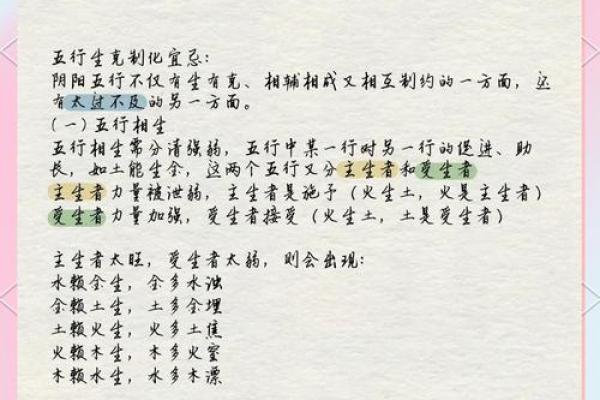 五行生克制化宜忌：
阴阳五行不仅有生有克、相辅相成又相互制约的一方面，还
有太过不及的另一方面。
(一)五行相生
五行相生需分清强弱，五行中某一行对另一行的促进、助
长，如土能生金，这两个五行又分主生者和受生者
主生者力量被泄弱，主生者是施予（火生土，火是主生者）
受生者力量加强，受生者接受（火生土，土是受生者）
主生者太旺，受生者太弱，则会出现：
水赖金生，金多水浊
金赖土生，土多金埋
土赖火生，火多土焦
火赖木生，木多火窒
木赖水生，水多木漂